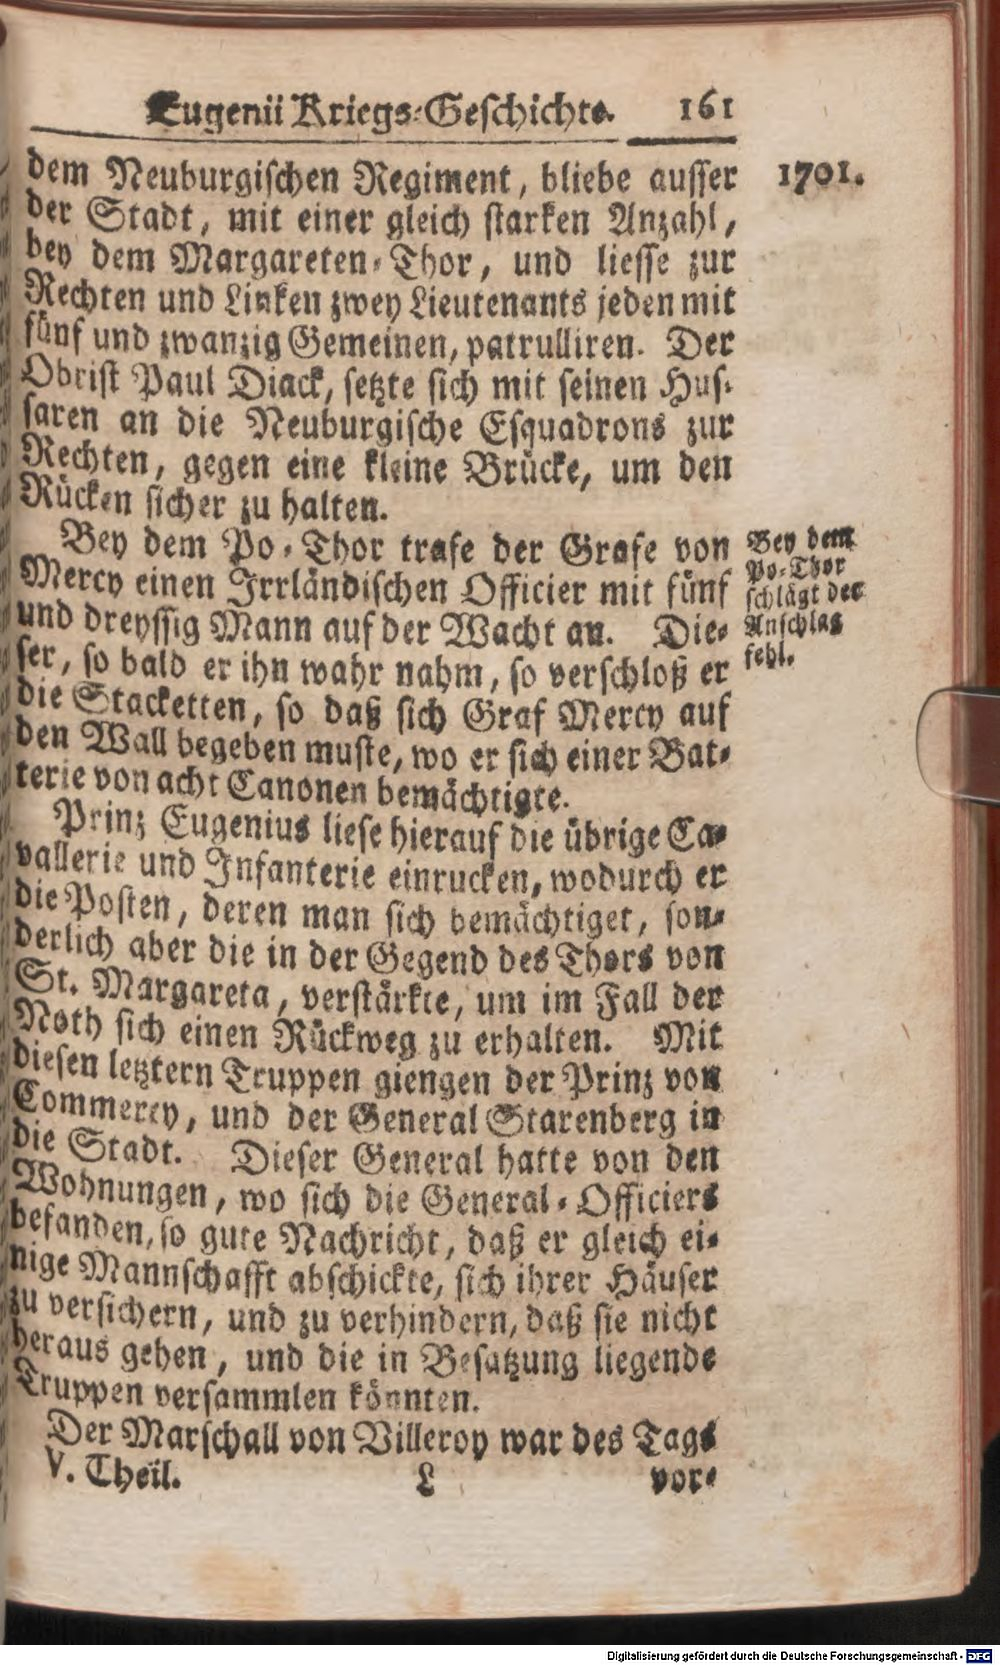 Eugenii Kriegs-Geschichte. 161
dem Neuburgischen Regiment, bliebe ausser
1701.
der Stadt, mit einer gleich starken Anzahl,
bey dem Margareten-Thor, und liesse zur
Rechten und Linken zwey Lieutenants jeden mit
fünf und zwanzig Gemeinen, patrulliren. Der
Obrist Paul Diack, setzte sich mit seinen Hus-
saren an die Neuburgische Esquadrons zur
Rechten, gegen eine kleine Brücke, um den
Rücken sicher zu halten.
Bey dem Po-Thor trafe der Grafe von
Mercy einen Irrländischen Officier mit fünf
und dreyssig Mann auf der Wacht an. Die-
ser, so bald er ihn wahr nahm, so verschloß er
die Stacketten, so daß sich Graf Mercy auf
den Wall begeben muste, wo er sich einer Bat-
terie von acht Canonen bemächtigte.
Bey dem
Po-Thor
schlägt der
Anschlag
fehl.
Prinz Eugenius liese hierauf die übrige Ca-
vallerie und Infanterie einrucken, wodurch er
die Posten, deren man sich bemächtiget, son-
derlich aber die in der Gegend des Thors von
St. Margareta, verstärkte, um im Fall der
Noth sich einen Rückweg zu erhalten. Mit
diesen letztern Truppen giengen der Prinz von
Commercy, und der General Starenberg in
die Stadt. Dieser General hatte von den
Wohnungen, wo sich die General-Officiers
befanden, so gute Nachricht, daß er gleich ei-
nige Mannschafft abschickte, sich ihrer Häuser
zu versichern, und zu verhindern, daß sie nicht
heraus gehen, und die in Besatzung liegende
Truppen versammlen könnten.
Der Marschall von Villeroy war des Tags
V. Theil. L vor-
Digitalisierung gefördert durch die Deutsche Forschungsgemeinschaft - DFG